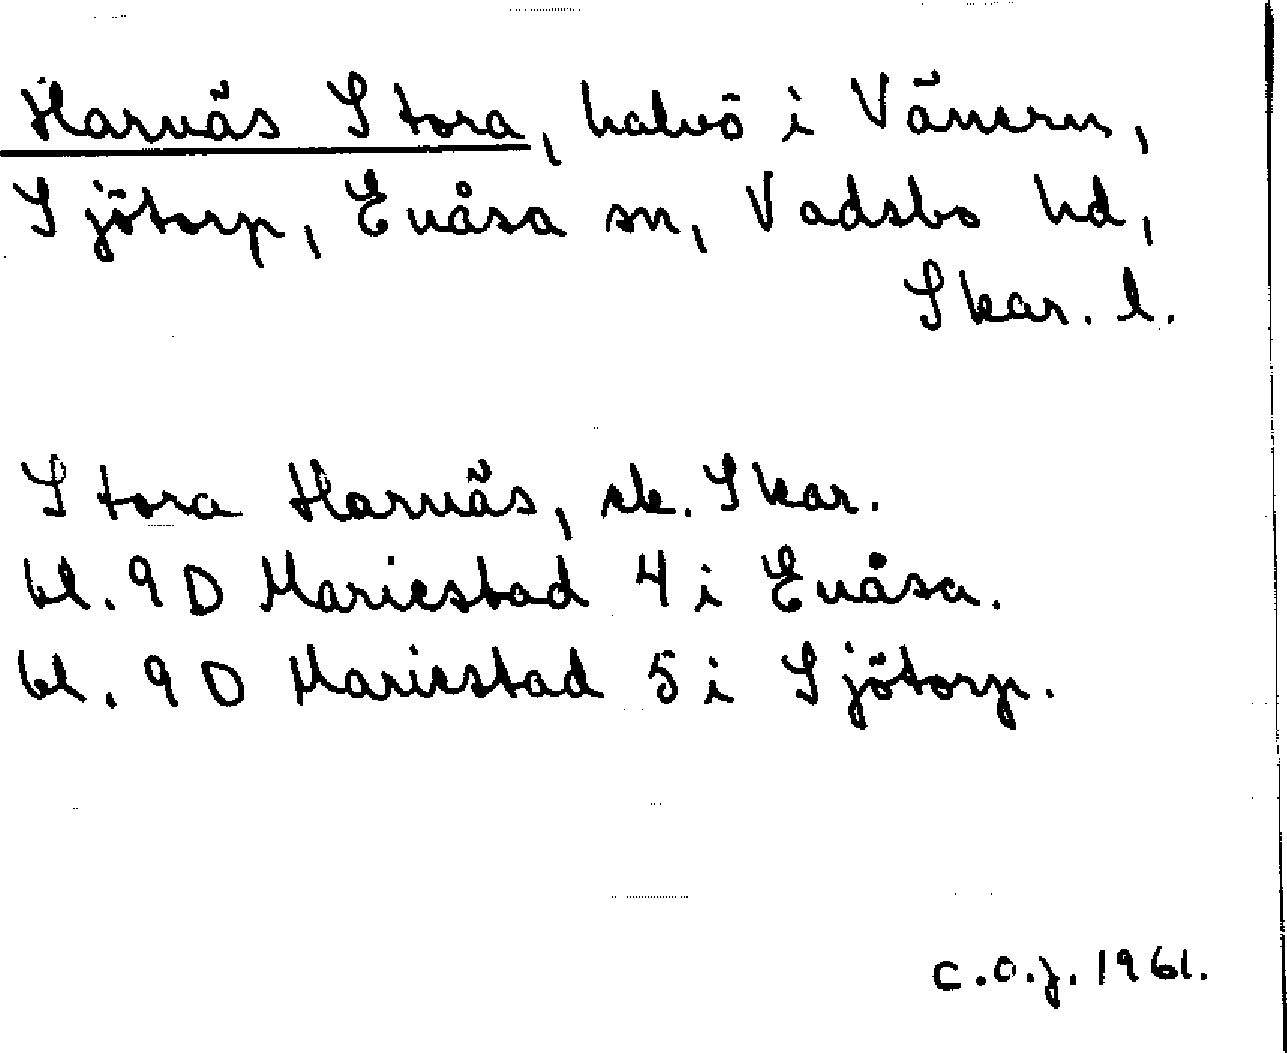 Harnäs Stora, halvö i Vänern,
Sjötorp, Enåsa sn, Vadsbo hd,
Skar. l.
Stora Harnäs, ek. Skar.
bl. 9D Mariestad 4 i Enåsa.
bl. 9D Mariestad 5 i Sjötorp.
C.O.J. 1961.